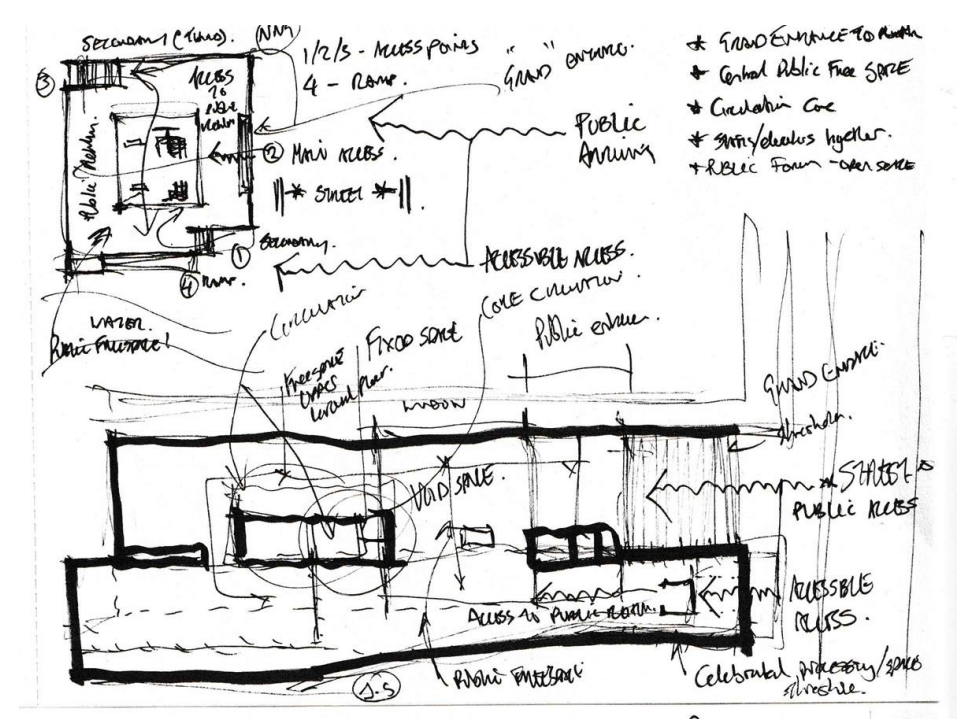 SECONDARY (
1/2/3 - ACCESS POINTS
4 - RAMP.
"GRAND" ENTRANCE.
* GRAND ENTRANCE TO
* Central Public Free SPACE
* Circulation Core
* together.
* PUBLIC Forum - OPEN SPACE
3
ACCESS TO PUBLIC REALM
Public Realm.
2 MAIN ACCESS.
PUBLIC ARRIVING
|| * STREET * || .
1 SECONDARY.
4 RAMP.
ACCESSIBLE ACCESS.
WATER.
PUBLIC FREESPACE!
CIRCULATION
CORE CIRCULATION.
FIXED SPACE
Freespace
ground floor.
Public entrance.
WINDOW
GRAND ENTRANCE.
threshold.
VOID SPACE.
STREET
PUBLIC ACCESS
ACCESSIBLE ACCESS.
ACCESS TO PUBLIC REALM.
PUBLIC FREESPACE
threshold.